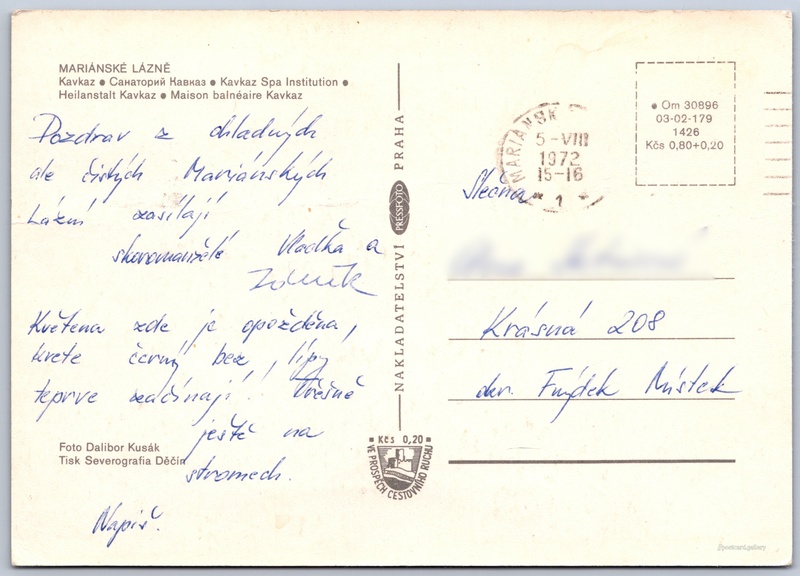 MARIÁNSKÉ LÁZNĚ
Kavkaz ● Санаторий Кавказ ● Kavkaz Spa Institution ●
Heilanstalt Kavkaz ● Maison balnéaire Kavkaz
Pozdrav z chladných
ale čistých Mariánských
Lázní zasílají
skoromanželé Vladka a
Zdeněk
Květena zde je opožděna,
kvete černý bez, lípy
teprve začínají! Třešně
ještě na
stromech.
Napiš.
Foto Dalibor Kusák
Tisk Severografia Děčín
NAKLADATELSTVÍ PRESSFOTO PRAHA
Kčs 0,20
VE PROSPĚCH CESTOVNÍHO RUCHU
MARIÁNSK
5-VIII
1972
15-16
1
● Om 30896
03-02-179
1426
Kčs 0,80+0,20
Slečna
Krásná 208
okr. Frýdek Místek
postcard.gallery